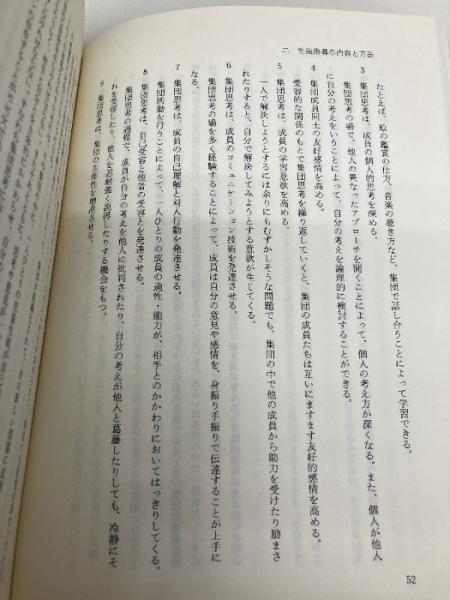 二 生徒指導の内容と方法
たとえば、絵の鑑賞の仕方、音楽の聴き方など、集団で話し合うことによって学習できる。
3 集団思考は、成員の個人的思考を深める。
集団思考の場で、他人の異なったアプローチを聞くことによって、個人の考え方が深くなる。また、個人が他人
に自分の考えをいうことによって、自分の考えを論理的に検討することができる。
4 集団成員同士の友好感情を高める。
受容的な関係のもとで集団思考を繰り返していくと、集団の成員たちは互いにますます友好的感情を高める。
5 集団思考は、成員の学習意欲を高める。
一人で解決しようとするには余りにもむずかしそうな問題でも、集団の中で他の成員から助力を受けたり励まさ
れたりすると、自分で解決してみようとする意欲が生じてくる。
6 集団思考は、成員のコミュニケーション技術を発達させる。
集団思考の場を多く経験することによって、成員は自分の意見や感情を、身振り手振りで伝達することが上手に
なる。
7 集団思考は、成員の自己理解と対人行動を発達させる。
集団活動を行うことによって、一人ひとりの成員の適性・能力が、相手とのかかわりにおいてはっきりしてくる。
8 集団思考は、自己受容と他者の受容とを発達させる。
集団思考の過程で、成員が自分の考えを他人に批判されたり、自分の考えが他人と葛藤したりしても、冷静にそ
れを受容したり、他人を忍耐強く説得したりする機会をもつ。
9 集団思考は、集団の生産性を増進させる。
52